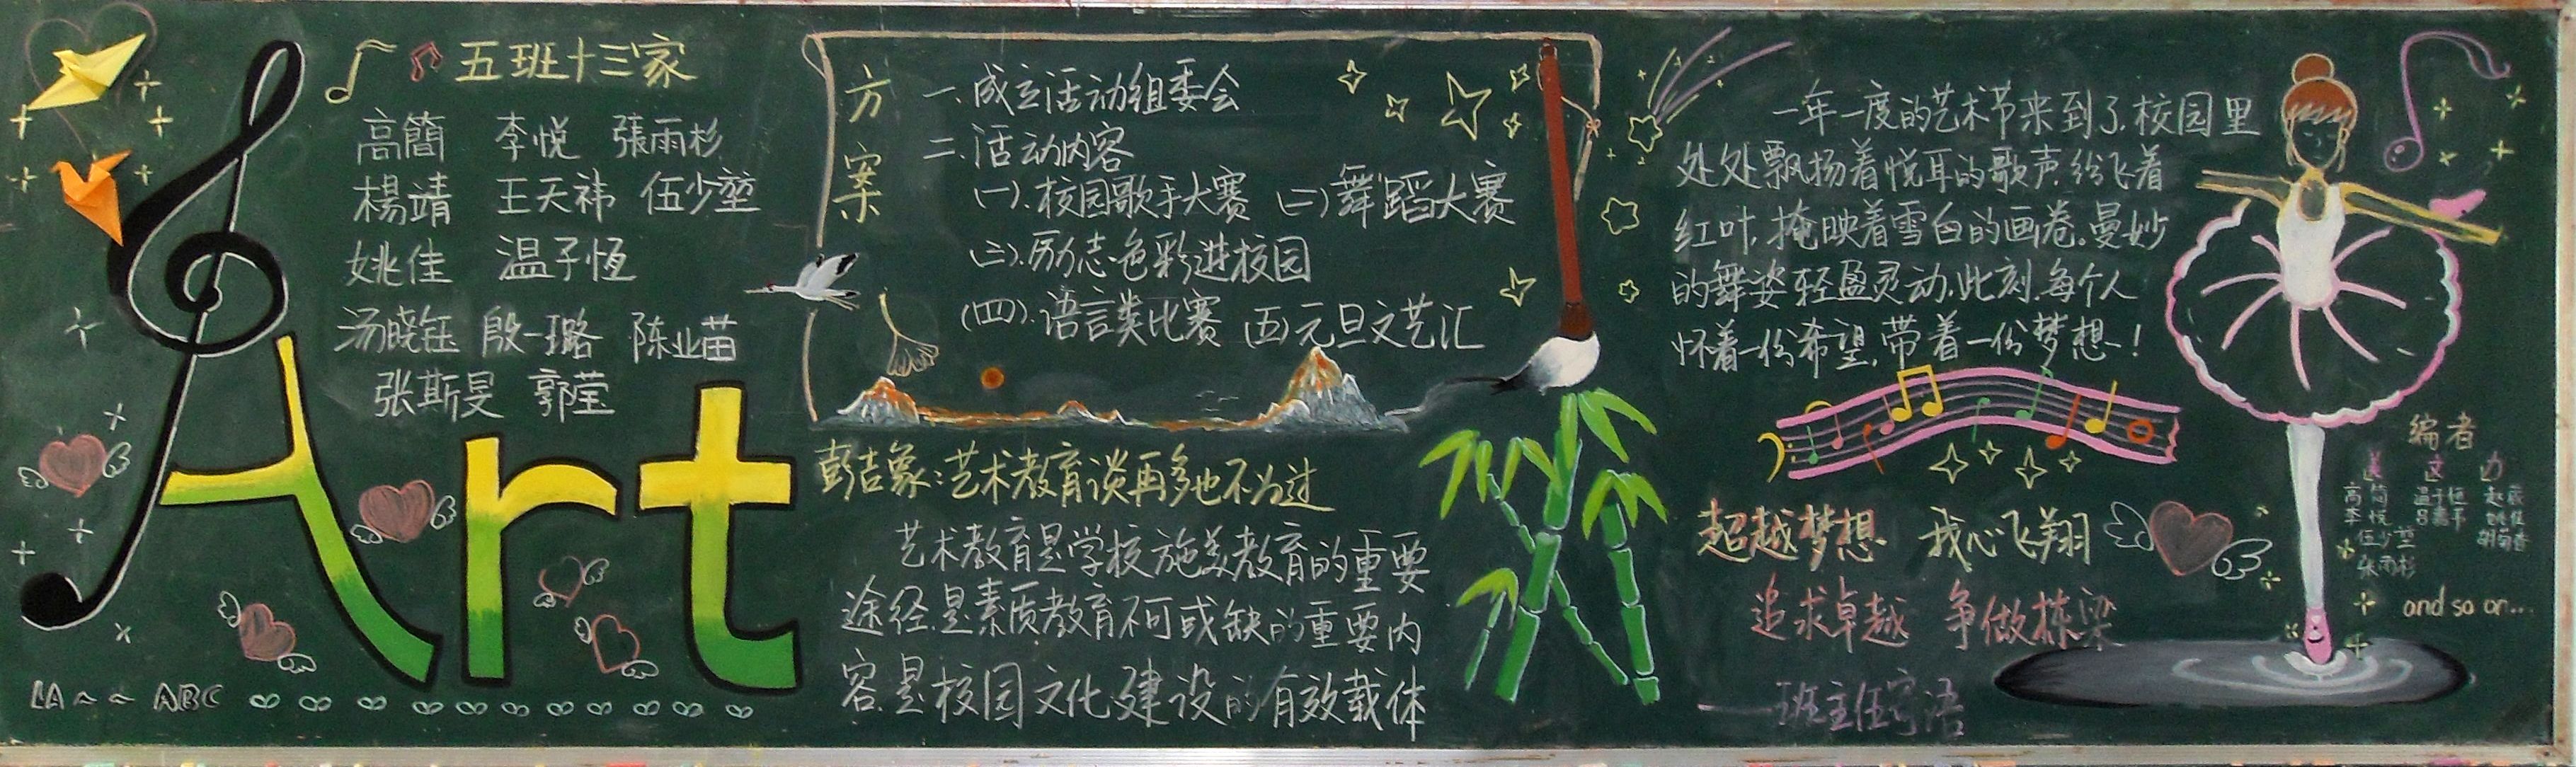 五班十三家
高簡 李悦 張雨杉
楊靖 王天祎 伍少堃
姚佳 温子恒
汤晓钰 殷一璐 陈业苗
张斯旻 郭莹
Art
LA~~ABC
方案
一.成立活动组委会
二.活动内容
(一).校园歌手大赛 (二)舞蹈大赛
(三).励志色彩进校园
(四).语言类比赛 (五)元旦文艺汇
彭吉象:艺术教育谈再多也不为过
艺术教育是学校施美教育的重要
途径,是素质教育不可或缺的重要内
容,是校园文化建设的有效载体
一年一度的艺术节来到了,校园里
处处飘扬着悦耳的歌声,纷飞着
红叶,掩映着雪白的画卷。曼妙
的舞姿轻盈灵动,此刻,每个人
怀着一份希望,带着一份梦想!
超越梦想 我心飞翔
追求卓越 争做栋梁
——班主任寄语
编者
美 文 力
高简 温子恒
李悦 姚佳
伍少堃
张雨杉
and so on...